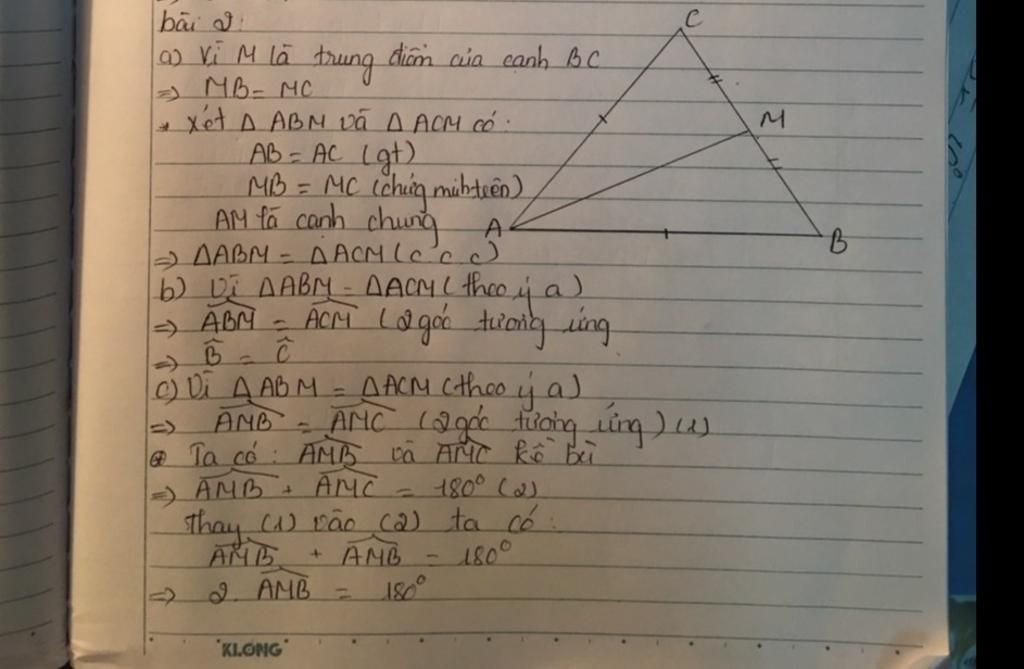 bài 2:
a) Vì M là trung điểm của cạnh BC
=> MB = MC
* Xét Δ ABM và Δ ACM có:
AB = AC (gt)
MB = MC (chứng minh trên)
AM là cạnh chung
=> ΔABM = ΔACM (c c c)
b) Vì ΔABM = ΔACM (theo ý a)
=> \widehat{ABM} = \widehat{ACM} (2 góc tương ứng
=> \widehat{B} = \widehat{C}
c) Vì Δ ABM = ΔACM (theo ý a)
=> \widehat{AMB} = \widehat{AMC} (2 góc tương ứng) (1)
⊛ Ta có: \widehat{AMB} và \widehat{AMC} kề bù
=> \widehat{AMB} + \widehat{AMC} = 180° (2)
Thay (1) vào (2) ta có:
\widehat{AMB} + \widehat{AMB} = 180°
=> 2. \widehat{AMB} = 180°
C
M
A
B
KLONG